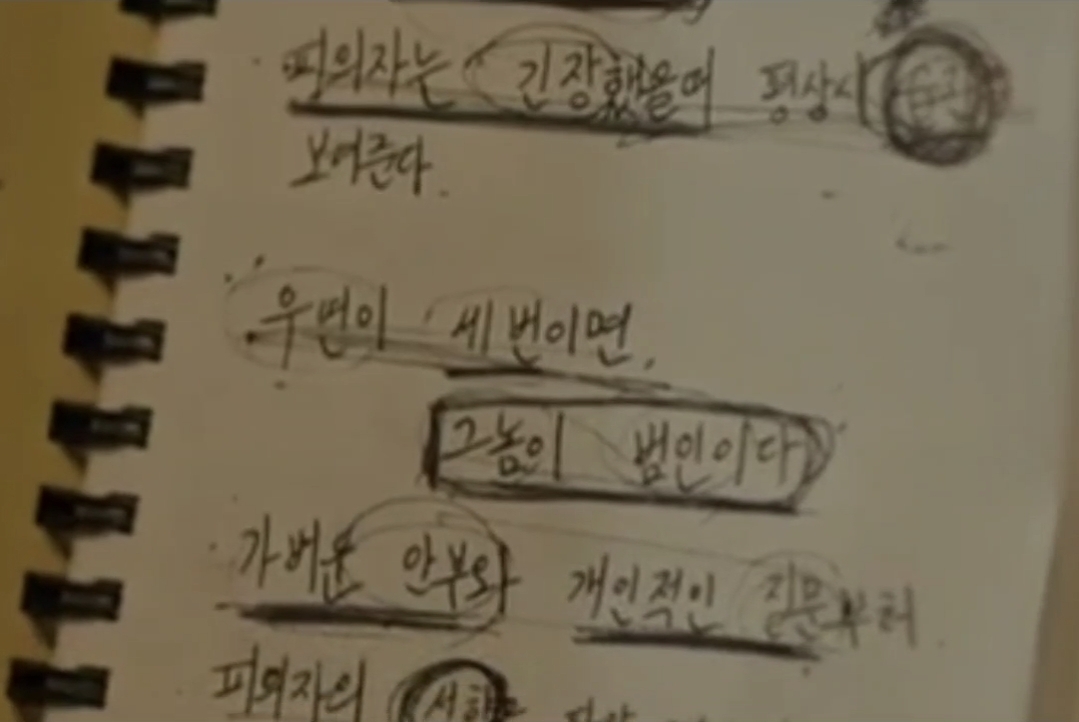 피의자는 긴장했을때 평상시
보여준다.
우연이 세번이면,
그놈이 범인이다
가벼운 안부와 개인적인 질문부터
피의자의